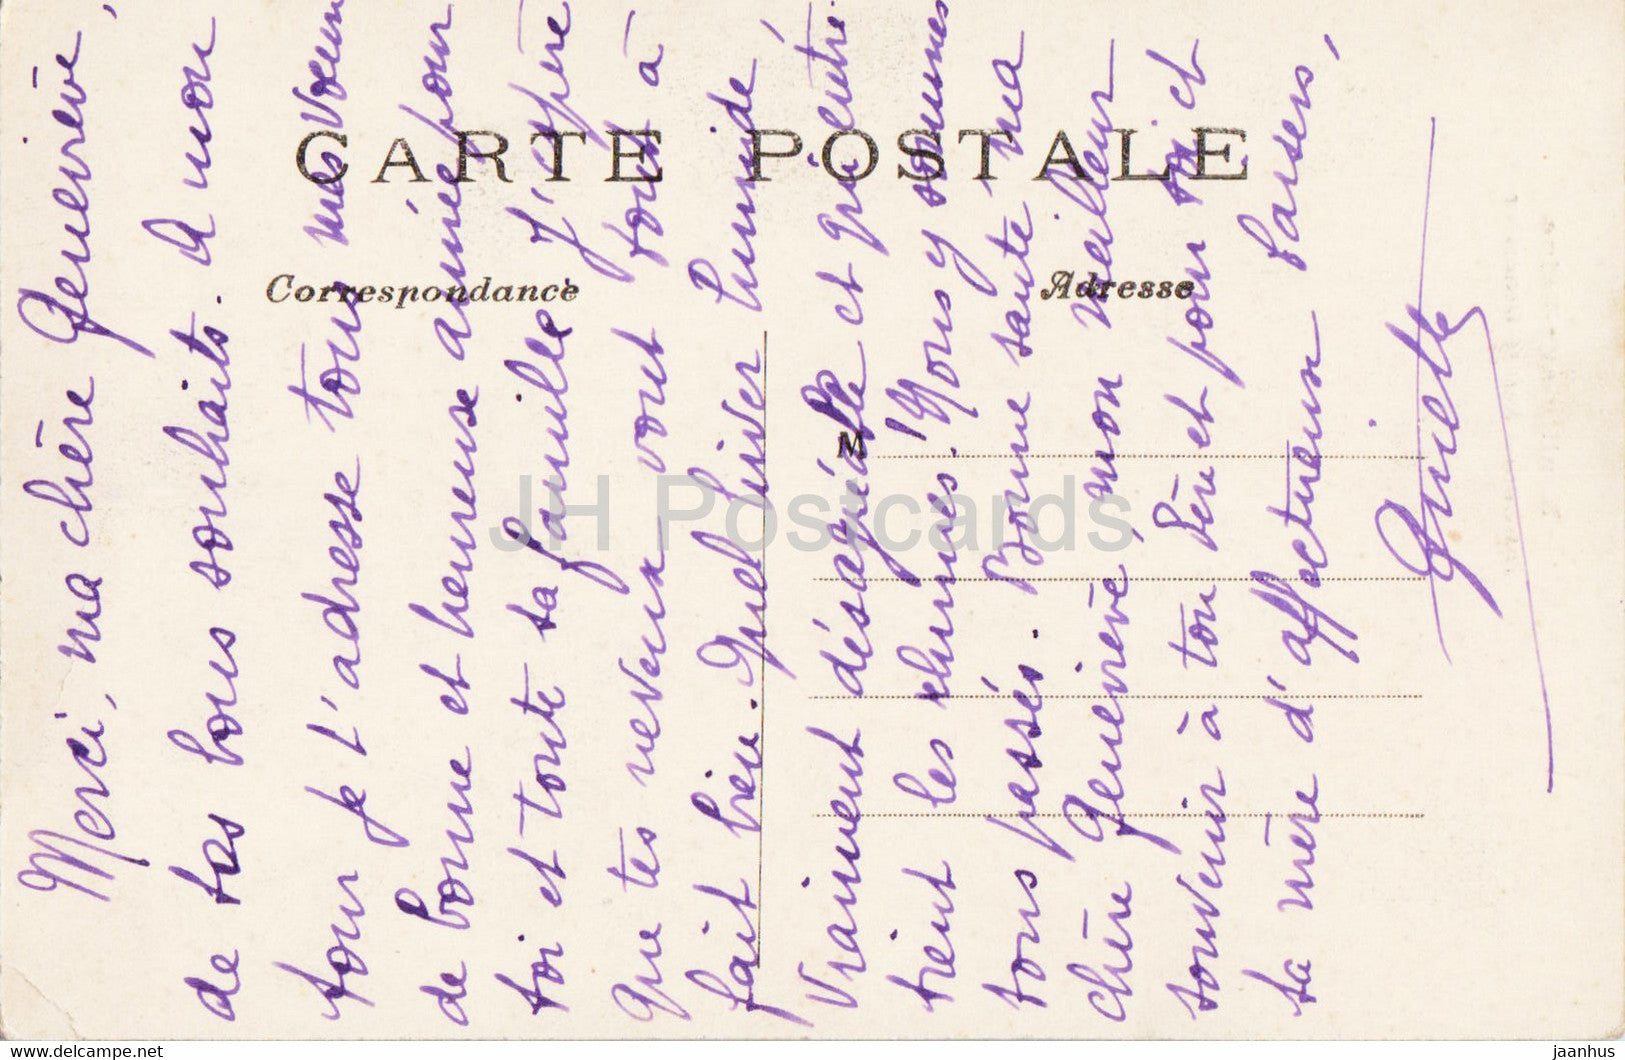 CARTE POSTALE
Correspondance
Adresse
M
Merci, ma chère Geneviève,
de tes bons souhaits. A mon
tour je t'adresse tous mes voeux
de bonne et heureuse année pour
toi et toute ta famille J'espère
que tes neveux vont tout à
fait bien. Quel hiver humide
Vraiment désagréable et qui entre
tient les rhumes! Nous y sommes
tous passés. Bonne santé ma
chère Geneviève, mon meilleur
souvenir à ton Père et pour toi et
ta mère d'affectueux baisers,
JH Postcards
www.delcampe.net
jaanhus